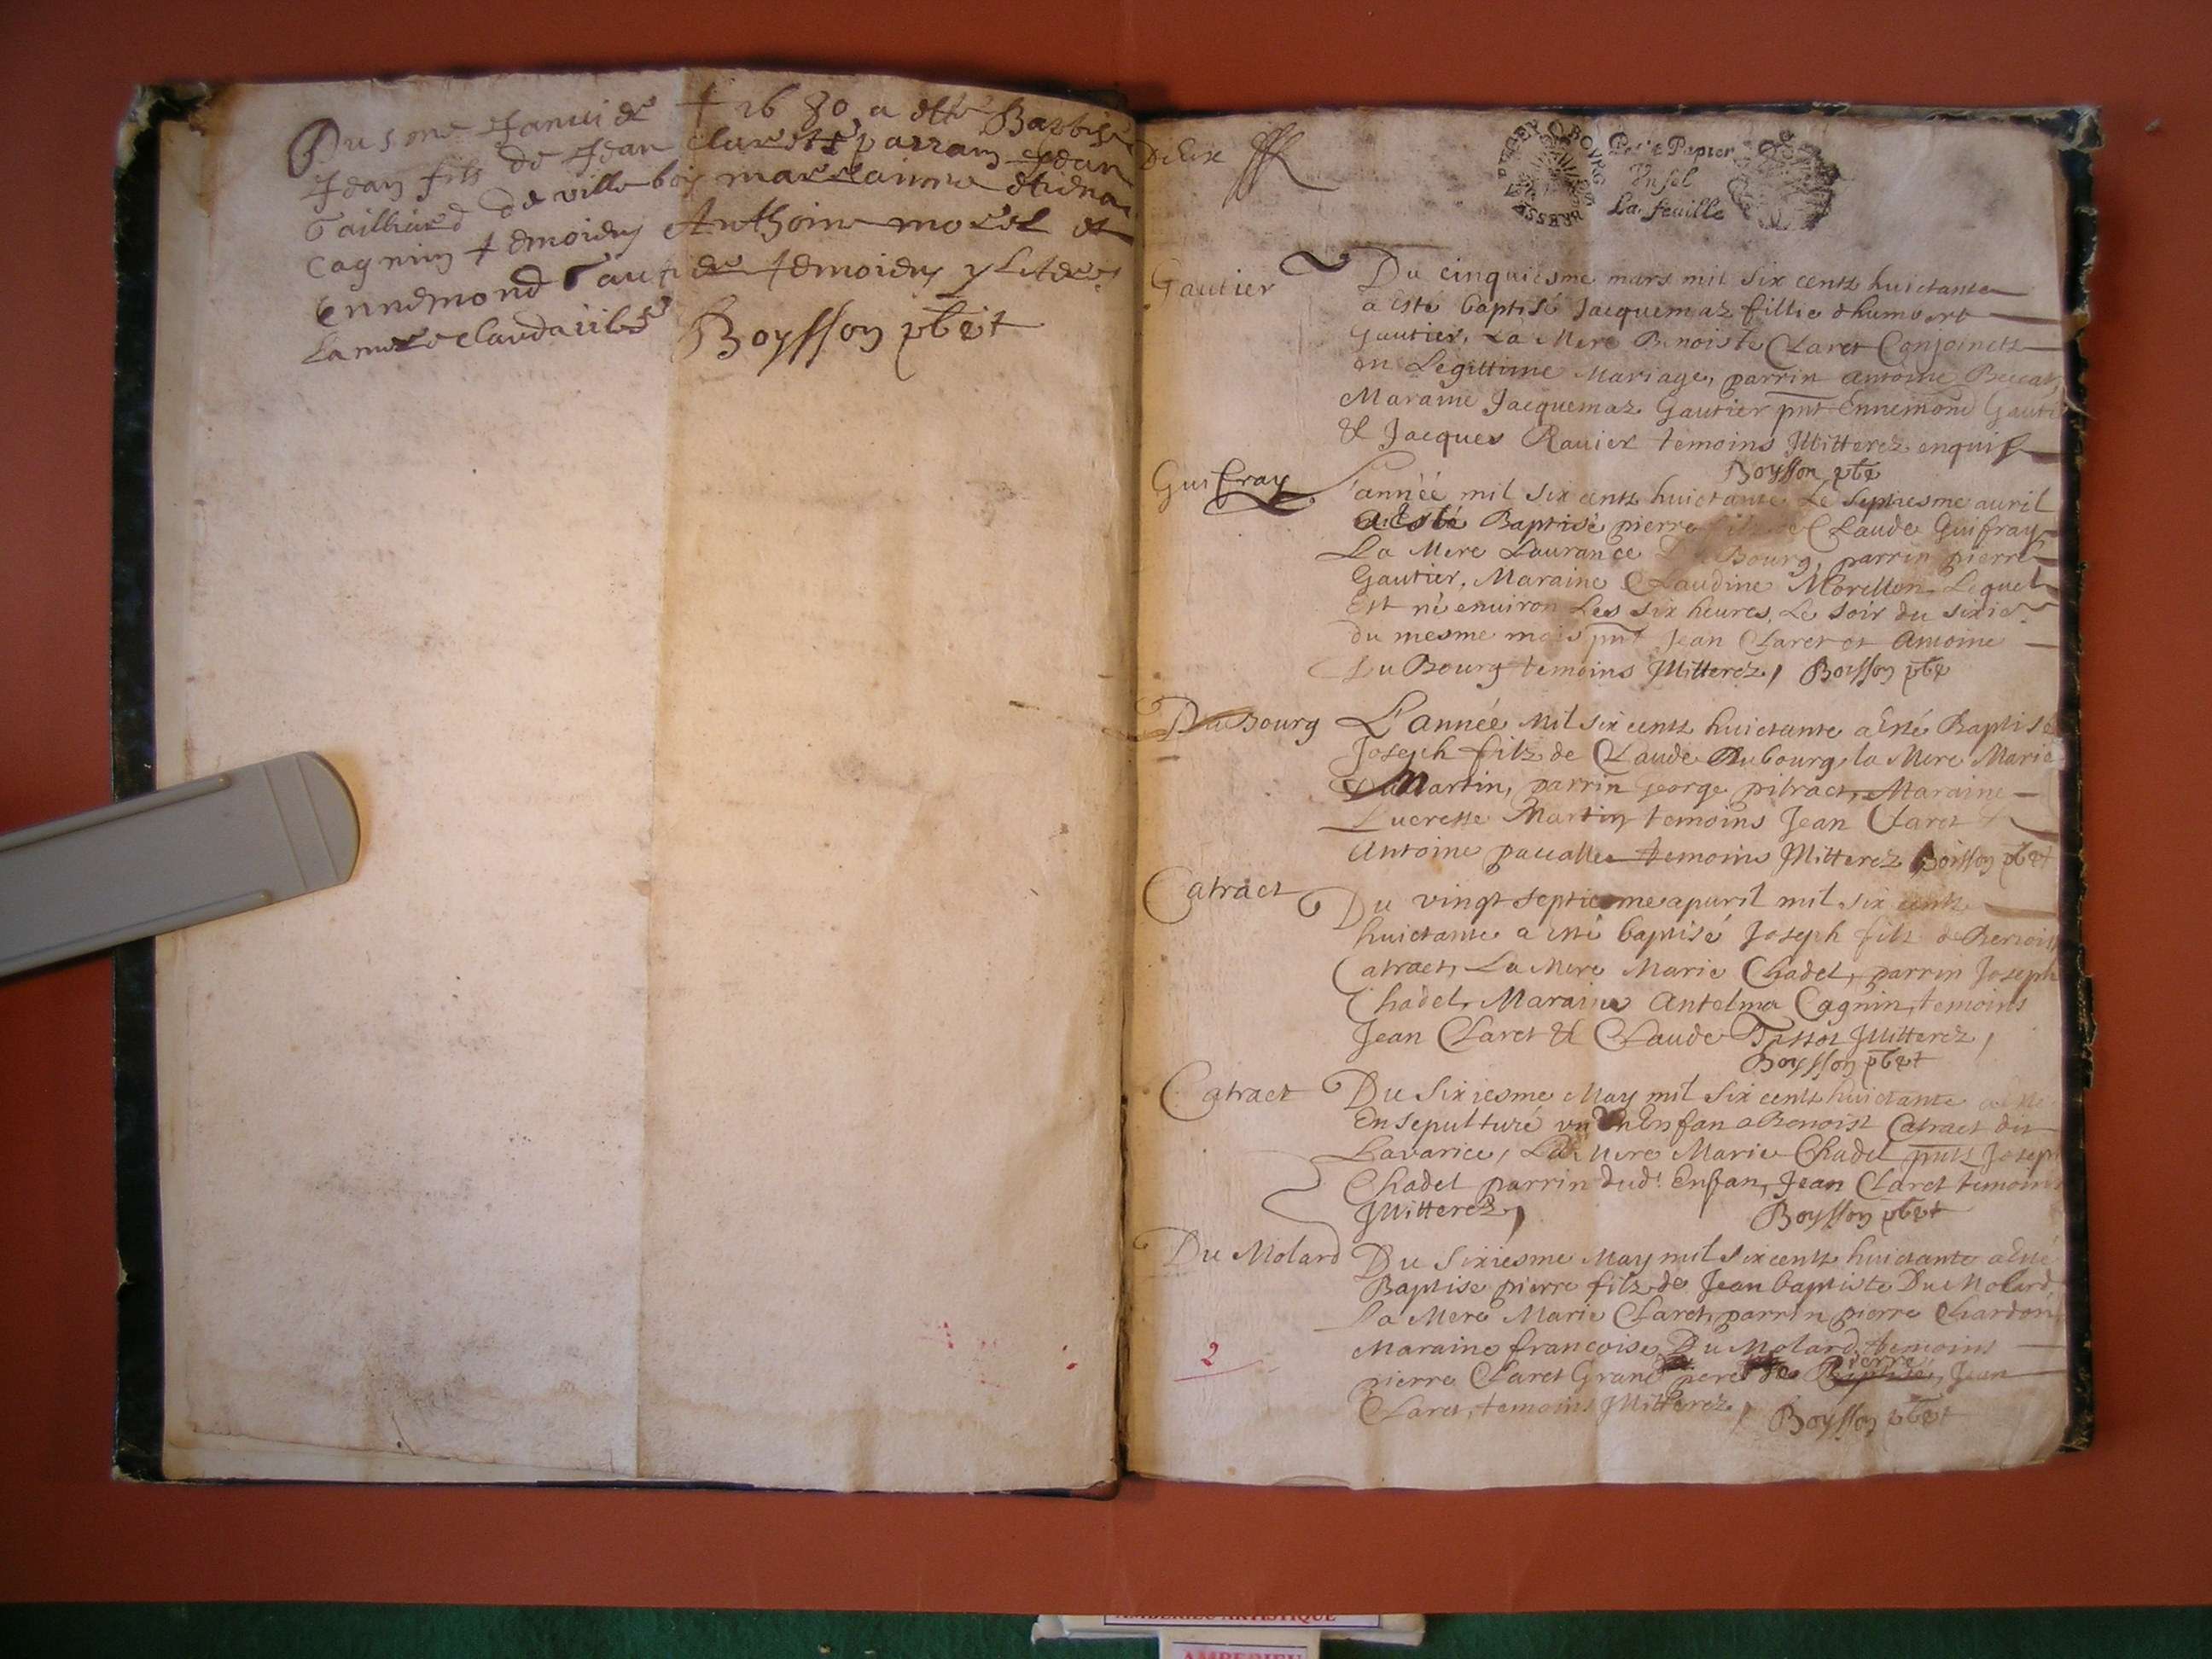 Du 5 me Janvier † 1680 a este Baptise
Jean fils de Jean claret parrain Jean
Tailliard de villeboy marrainne etiena
Cagnin temoiens Anthoine morel et
Ennemond Gautier temoiens yliteres
La mere clauda
Boysson pbt
Deux
BRESSE BUGEY BOURG
Petit Papier
Un sol
La feuille
Gautier
Du cinquiesme mars mil six cents huictante
a esté baptisé Jacquemaz fillie dhumbert
Gautier, La Mere Benoiste Claret Conjoincts
en Legittime Mariage, parrin antoine
Maraine Jacquemaz Gautier pnt Ennemond Gauti
& Jacques Ravier temoins Jllitterez enquis
Boysson pbr
Guifray
L'année mil six cents huictante Le septiesme auril
a Esté Baptisé pierre filz de Claude Guifray
La Mere Laurance Du Bourg, parrin pierre
Gautier, Maraine Claudine Morellon Lequel
Est né enuiron Les six heures, Le soir du sixie
du mesme mois pnt Jean Claret et Antoine
Du Bourg temoins Jllitterez, Boysson pbr
Du Bourg
L'année Mil six cents huictante a Esté Baptisé
Joseph filz de Claude Dubourg la Mere Marie
Martin, parrin george pitract, Maraine
Lucresse Martin temoins Jean Claret
Antoine temoins Jllitterez Boisson pbt
Catract
Du vingt septiesme apuril mil six cents
huictante a esté baptisé Joseph filz de Benoist
Catract, La Mere Marie Chadel, parrin Joseph
Chadel, Maraine Antelma Cagnin, temoins
Jean Claret & Claude Jllitterez,
Boysson pbt
Catract
Du sixiesme May mil six cents huictante a esté
Ensepulturé vn Enfan a Benoist Catract dit
Lavarice, La Mere Marie Chadel pnts Joseph
Chadel parrin dud.t Enfan, Jean Claret temoins
Jllitterez,
Boysson pbt
Du Molard
Du sixiesme May mil six cents huictante a Esté
Baptise pierre filz de Jean baptiste Du Molard,
La Mere Marie Claret, parrin pierre Chardon
Maraine francoise Du Molard, temoins
pierre
pierre Claret Grand pere de Baptisé, Jean
Claret, temoins Jllitterez,
Boysson pbt
2
AMBERIEU ARTISTIQUE
AMBERIEU